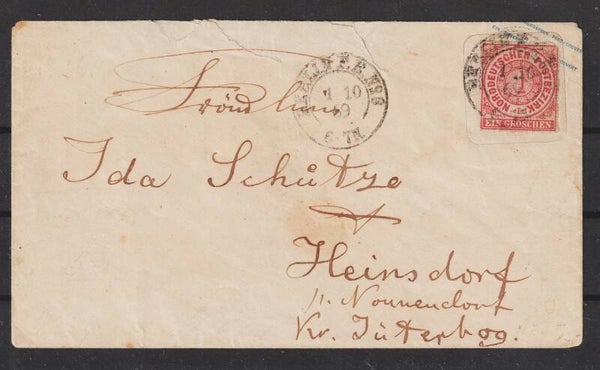 Fräulein
Ida Schütze
Heinsdorf
p. Nonnendorf
Kr. Jüterbog.
1 10
6-7N
NORDDEUTSCHER POSTBEZIRK
EIN GROSCHEN
1